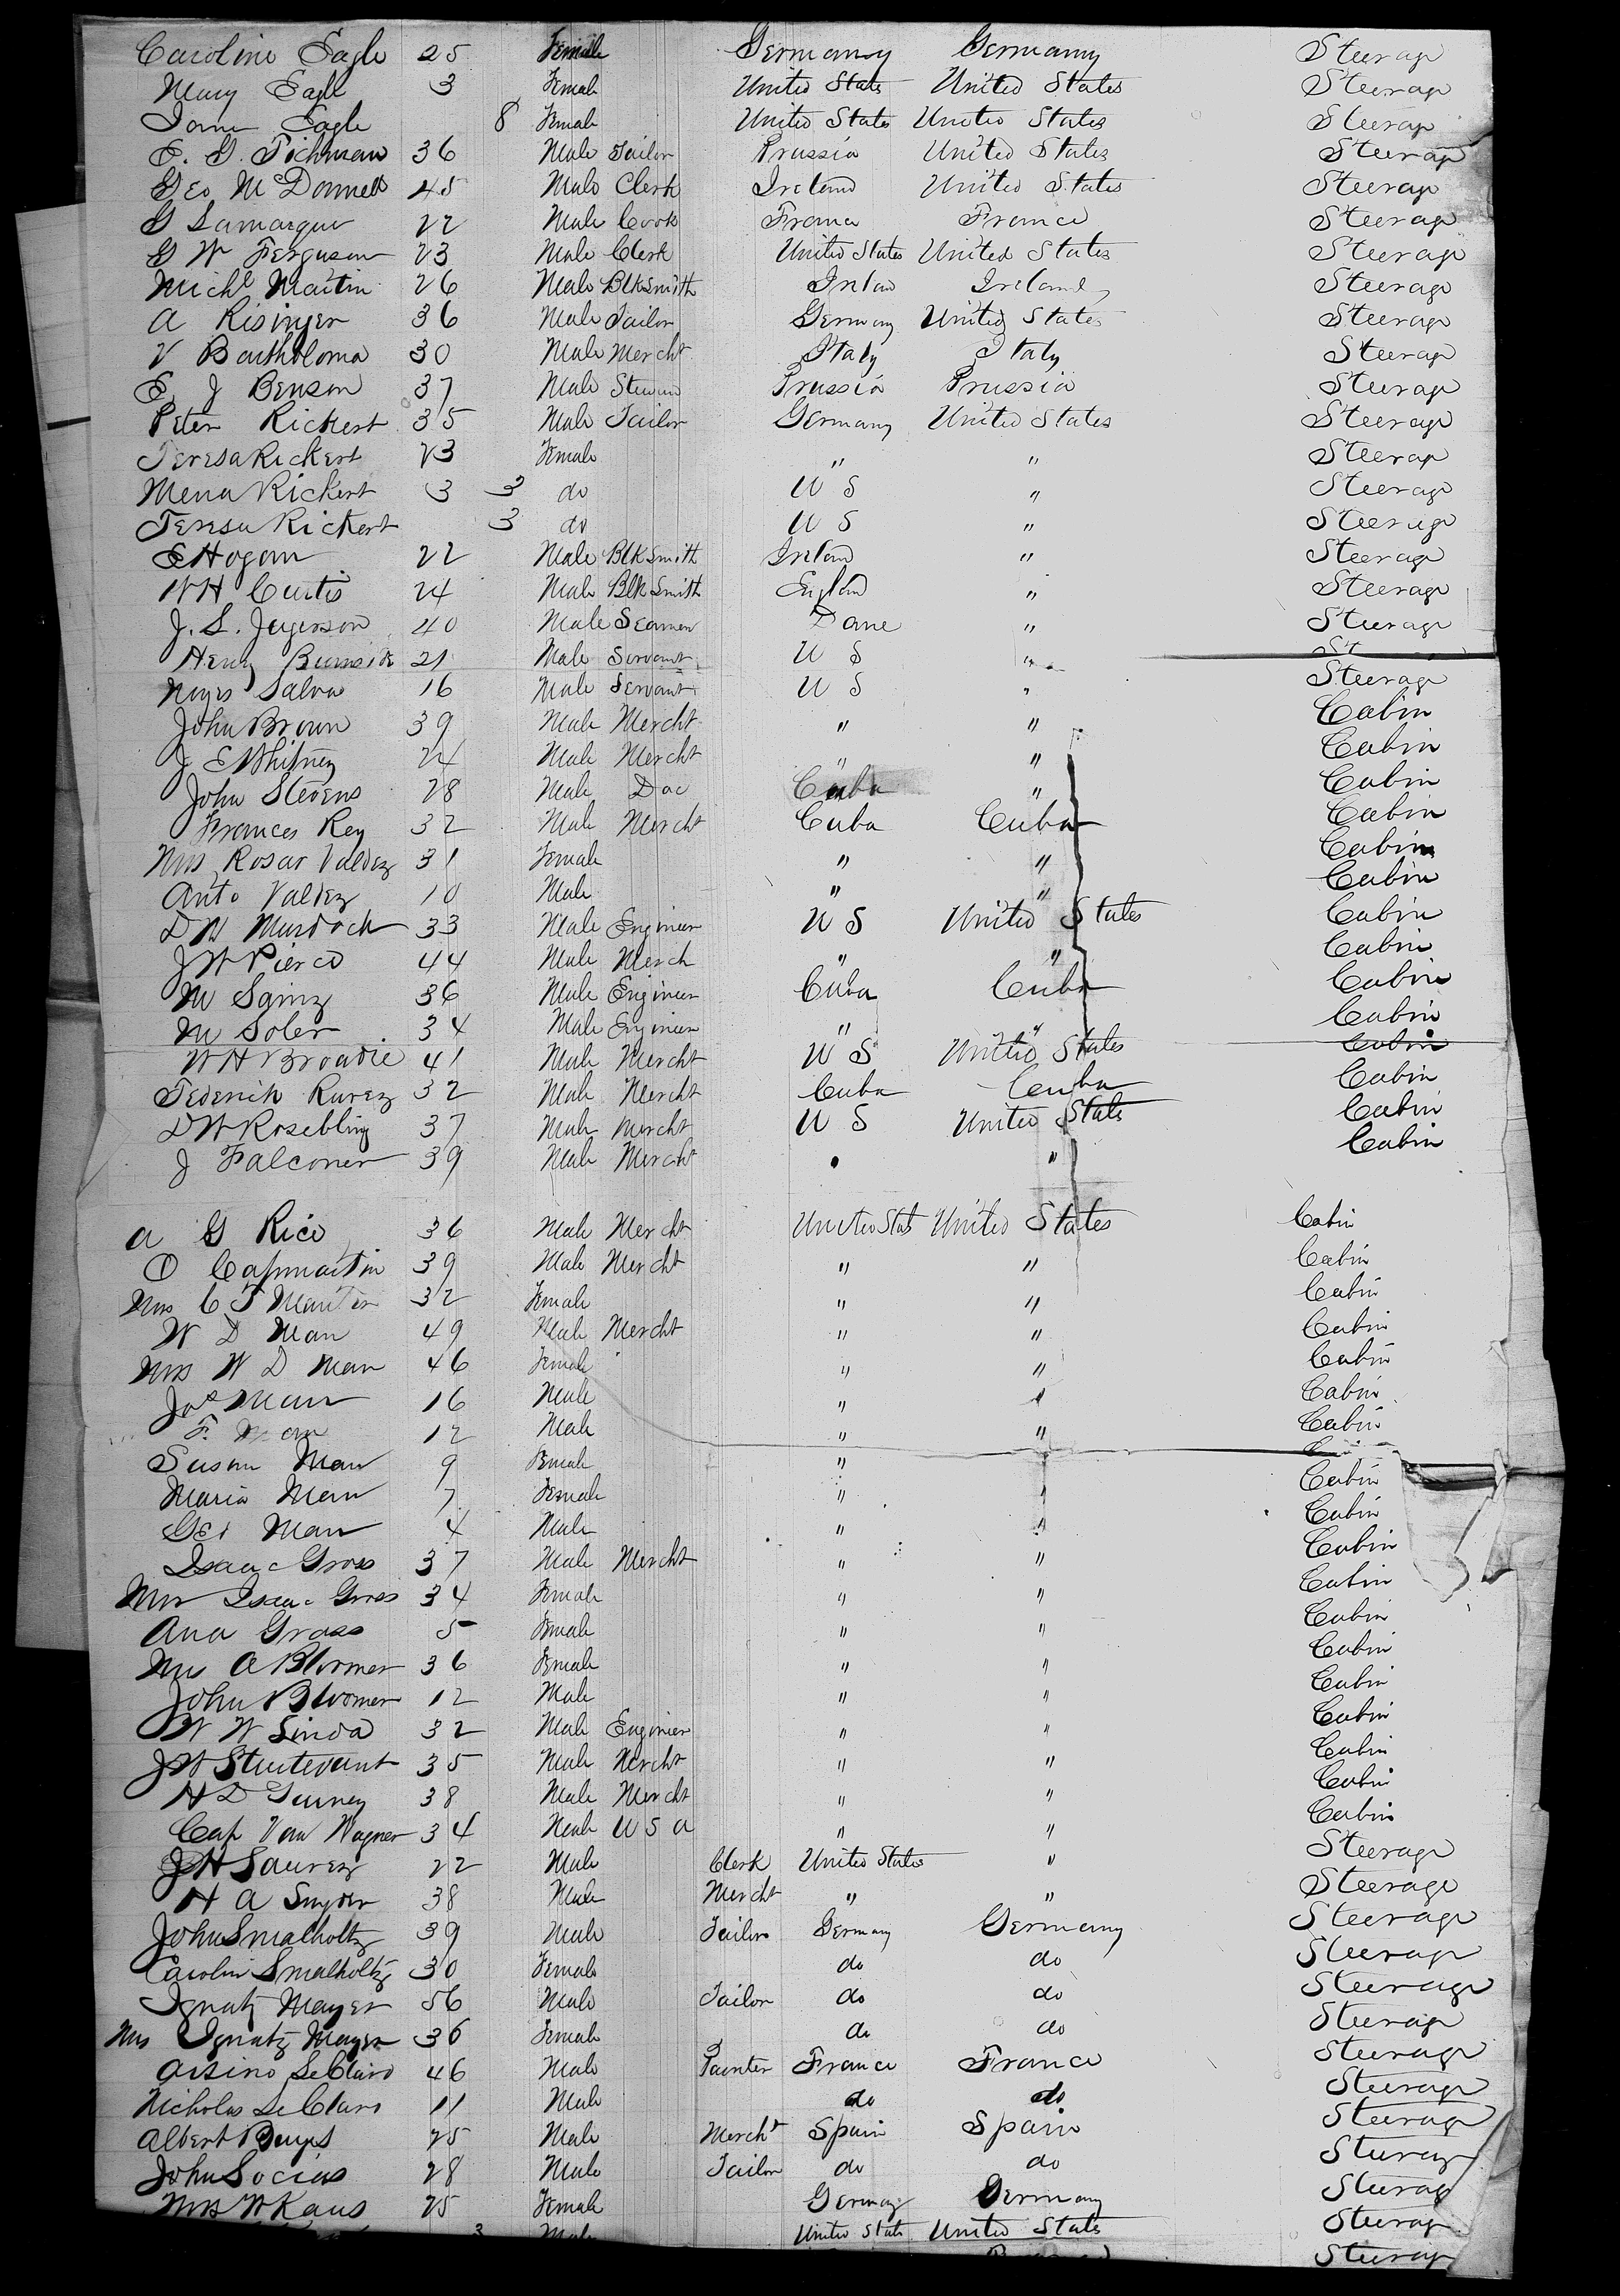 Caroline Eagle 25 Female Germany Germany Steerage
Mary Eagle 3 Female United States United States Steerage
Eagle 8 Female United States United States Steerage
E. G. Tichman 36 Male Tailor Prussia United States Steerage
Geo McDonnell 45 Male Clerk Ireland United States Steerage
G Lamarque 22 Male Cook France France Steerage
G W Ferguson 23 Male Clerk United States United States Steerage
Michl Martin 26 Male Blksmith Ireland Ireland Steerage
A Risinger 36 Male Tailor Germany United States Steerage
V Bartholoma 30 Male Mercht Italy Italy Steerage
E J Benson 37 Male Steward Prussia Prussia Steerage
Peter Rickert 35 Male Tailor Germany United States Steerage
Teresa Rickert 23 Female " " Steerage
Mena Rickert 3 3 do U S " Steerage
Teresa Rickert 3 do U S " Steerage
E Hogan 22 Male Blksmith Ireland " Steerage
W H Curtis 24 Male Blksmith England " Steerage
J. S. Jugerson 40 Male Seaman Dane " Steerage
Henry Burnside 21 Male Servant U S " St
Salva 16 Male Servant U S " Steerage
John Brown 39 Male Mercht " " Cabin
J E Whitney 24 Male Mercht " " Cabin
John Stevens 28 Male Doc Cuba " Cabin
Frances Rey 32 Male Mercht Cuba Cuba Cabin
Mrs Rosar Valdez 31 Female " " Cabin
Anto Valdez 10 Male " " Cabin
D N Murdoch 33 Male Engineer U S United States Cabin
J W Pierce 44 Male Merch " " Cabin
M Sainz 36 Male Engineer Cuba Cuba Cabin
M Soler 34 Male Engineer " " Cabin
W H Broadie 41 Male Mercht U S United States Cabin
Federick Rurez 32 Male Mercht Cuba Cuba Cabin
D W Rosebling 37 Male Mercht U S United States Cabin
J Falconer 39 Male Mercht " " Cabin
A G Rice 36 Male Mercht United States United States Cabin
O Capmartin 39 Male Mercht " " Cabin
Mrs C T Martin 32 Female " " Cabin
W D Man 49 Male Mercht " " Cabin
Mrs W D Man 46 Female " " Cabin
Jos Man 16 Male " " Cabin
F. Man 12 Male " " Cabin
Susan Man 9 Female "
Maria Man 7 Female " " Cabin
Geo Man 4 Male " " Cabin
Isaac Gross 37 Male Mercht " " Cabin
Mrs Isaac Gross 34 Female " " Cabin
Ana Gross 5 Female " " Cabin
Mrs A Bloomer 36 Female " " Cabin
John Bloomer 12 Male " " Cabin
W W Linda 32 Male Engineer " " Cabin
J W Sturtevant 35 Male Mercht " " Cabin
H D Gurney 38 Male Mercht " " Cabin
Cap Van Wagner 34 Male U S A " " Cabin
J H Saurez 22 Male Clerk United States " Steerage
H A Snyder 38 Male Mercht " " Steerage
John Smalholtz 39 Male Tailor Germany Germany Steerage
Carolin Smalholtz 30 Female do do Steerage
Ignatz Mayer 56 Male Tailor do do Steerage
Mrs Ignatz Mayer 36 Female do do Steerage
Arsino LeClaro 46 Male Painter France France Steerage
Nicholas LeClaro 11 Male do do Steerage
Albert 25 Male Mercht Spain Spain Steerage
John Socias 28 Male Tailor do do Steerage
Mrs W Kaus 25 Female Germany Germany Steerage
3 Male United States United States Steerage
Steerage